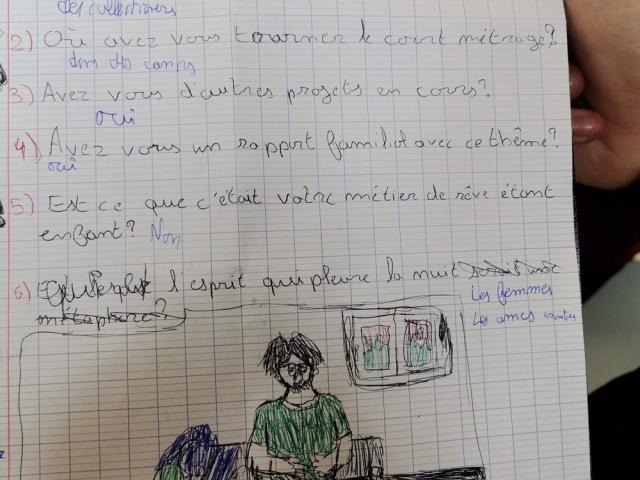 Des collectionneurs
2) Où avez vous tourner le court métrage?
dans des camps
3) Avez vous d'autres projets en cours?
oui
4) Avez vous un rapport familial avec ce thème?
oui
5) Est ce que c'était votre métier de rêve étant
enfant? Non
6) l'esprit qui pleure la nuit
métaphore?
Les femmes
Les ames